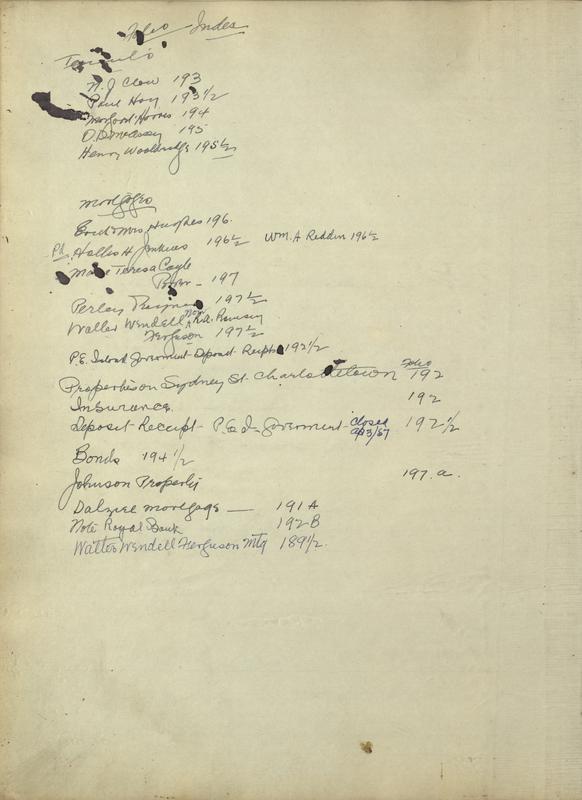 Folio Index
N. J. Clow 193
Paul Hoy 193½
Harris 194
O. D. 195
Henry Wooldridge 195½
Mortgages
Mrs. Hughes 196.
Pd. Hollis H. Jenkins 196½ Wm. A Reddin 196½
Teresa Coyle
197
Perley 197½
Walter Wendell Now R.A. Ramsey
Ferguson 197½
P.E. Island Government Deposit Receipt 192½
Folio
Properties on Sydney St. Charlottetown 192
Insurance 192
Deposit Receipt - P.E.I. Government - closed Ap 3/57 192½
Bonds 194½
Johnson Property 197.a.
Dalziel mortgage — 191A
Note Royal Bank 192B
Walter Wendell Ferguson Mtg 189½.